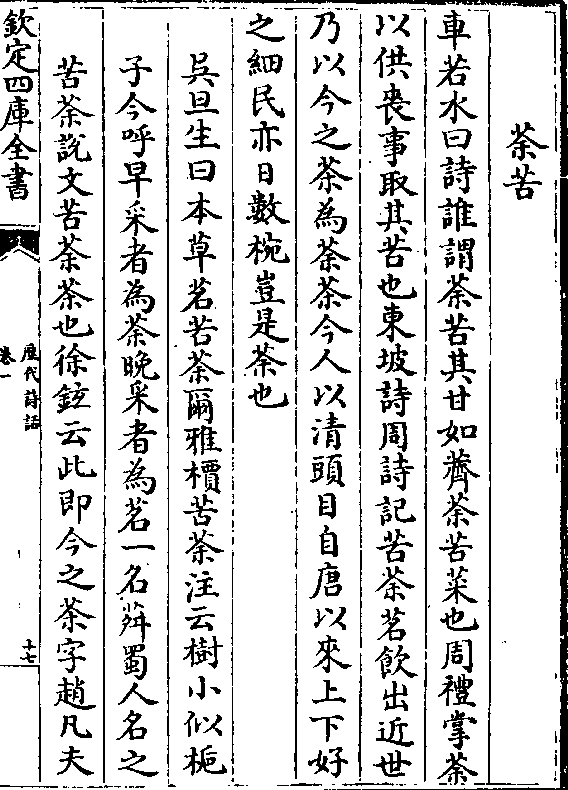 荼苦
車若水曰詩誰謂荼苦其甘如薺荼苦菜也周禮掌荼
以供喪事取其苦也東坡詩周詩記苦荼茗飲出近世
乃以今之茶為荼茶今人以清頭目自唐以來上下好
之細民亦日數椀豈是荼也
吳旦生曰本草茗苦荼爾雅檟苦荼注云樹小似梔
子今呼早采者為茶晚采者為茗一名荈蜀人名之
苦荼說文苦荼荼也徐鉉云此即今之茶字趙凡夫
欽定四庫全書
歷代詩話
卷一
十七